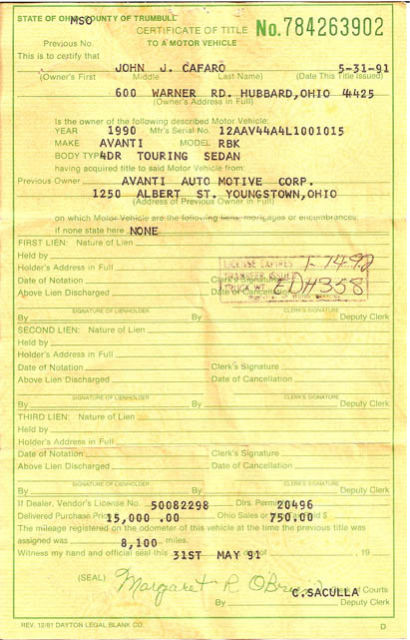 STATE OF OHIO, COUNTY OF TRUMBULL
MSO
CERTIFICATE OF TITLE No. 784263902
Previous No. TO A MOTOR VEHICLE
This is to certify that
JOHN J. CAFARO 5-31-91
(Owner's First Middle Last Name) (Date This Title Issued)
600 WARNER RD. HUBBARD,OHIO 44425
(Owner's Address in Full)
Is the owner of the following described Motor Vehicle:
YEAR 1990 Mfr's Serial No. 12AAV44A4L1001015
MAKE AVANTI MODEL RBK
BODY TYPE 4DR TOURING SEDAN
having acquired title to said Motor Vehicle from:
Previous Owner AVANTI AUTO MOTIVE CORP.
1250 ALBERT ST. YOUNGSTOWN,OHIO
(Address of Previous Owner in Full)
on which Motor Vehicle are the following liens, mortgages or encumbrances:
if none state here NONE
FIRST LIEN: Nature of Lien
Held by
LICENSE EXPIRES T-1492
Holder's Address in Full
TRANSFER ISSUED
Date of Notation Clerk's Signature
TRUCK WT. EDH358
Above Lien Discharged Date of Cancellation
SIGNATURE OF LIENHOLDER CLERK'S SIGNATURE
By By Deputy Clerk
SECOND LIEN: Nature of Lien
Held by
Holder's Address in Full
Date of Notation Clerk's Signature
Above Lien Discharged Date of Cancellation
SIGNATURE OF LIENHOLDER CLERK'S SIGNATURE
By By Deputy Clerk
THIRD LIEN: Nature of Lien
Held by
Holder's Address in Full
Date of Notation Clerk's Signature
Above Lien Discharged Date of Cancellation
SIGNATURE OF LIENHOLDER CLERK'S SIGNATURE
By By Deputy Clerk
If Dealer, Vendor's License No. 50082298 Dlrs. Permit 20496
Delivered Purchase Price 15,000 .00 Ohio Sales $ 750.00
The mileage registered on the odometer of this vehicle at the time the previous title was
assigned was 8,100 miles.
Witness my hand and official seal this 31ST MAY 91 , 19
(SEAL) Margaret R. O'Brien of Courts
C.SACULLA
By Deputy Clerk
REV. 12/81 DAYTON LEGAL BLANK CO. D